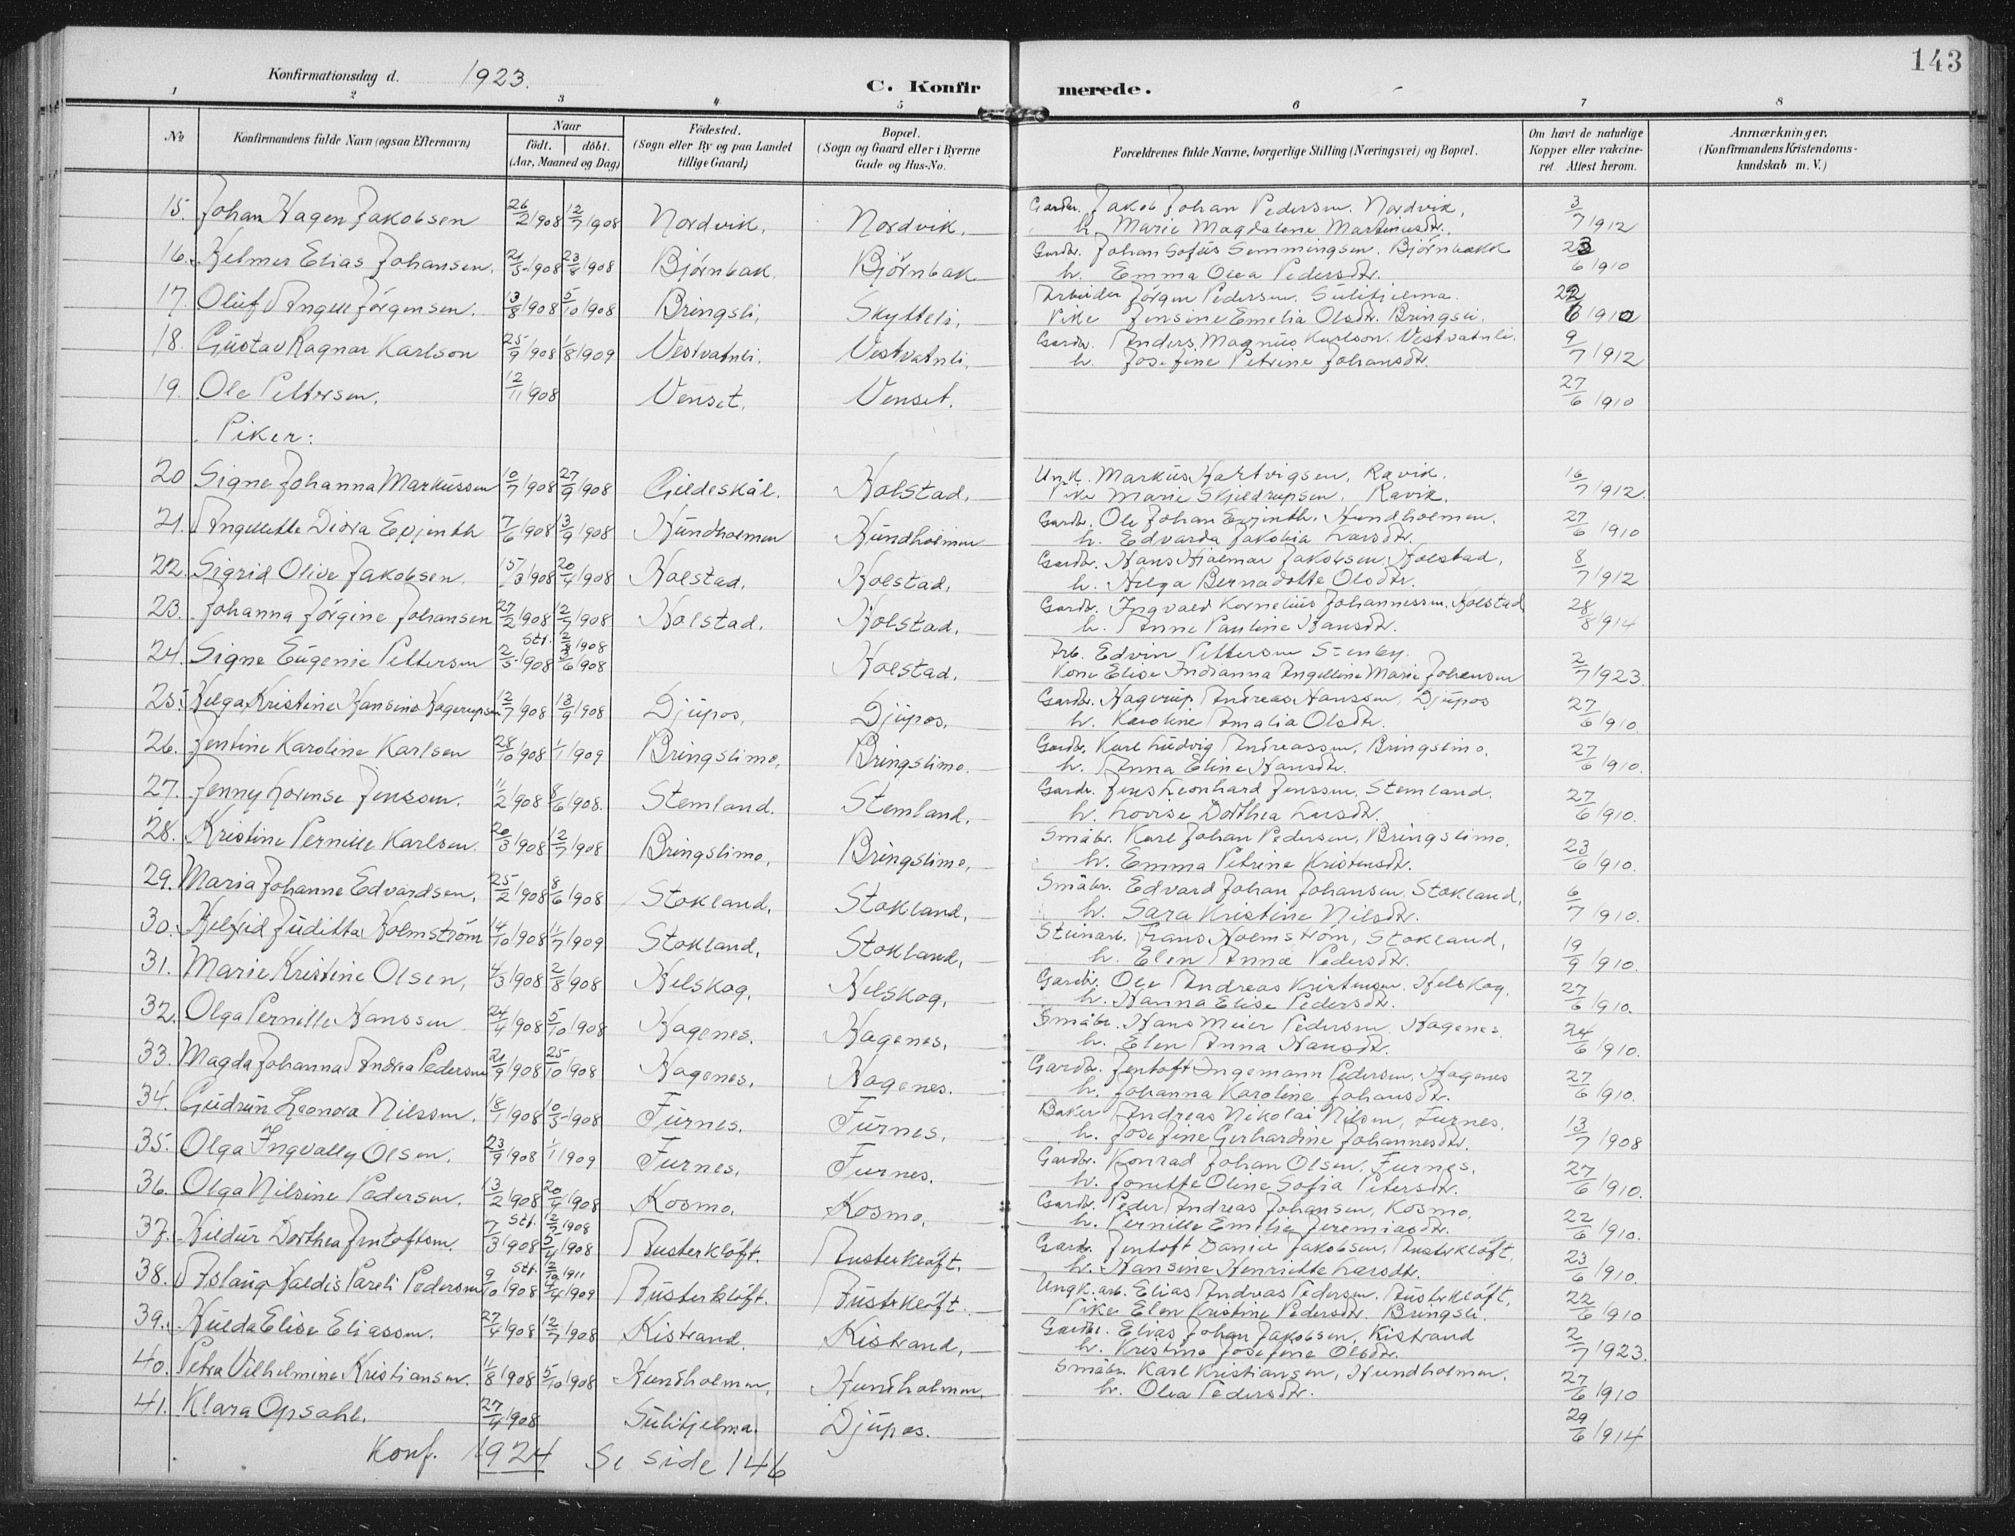 143
Konfirmationsdag d. 1923.
C. Konfirmerede.
1 2 3 4 5 6 7 8
No Konfirmandens fulde Navn (ogsaa Efternavn) Naar født. døbt. (Aar, Maaned og Dag) Fødested. (Sogn eller By og paa Landet tillige Gaard) Bopæl. (Sogn og Gaard eller i Byerne Gade og Hus-No. Forældrenes fulde Navne, borgerlige Stilling (Næringsvei) og Bopæl. Om havt de naturlige Kopper eller vakcineret. Attest herom. Anmærkninger. (Konfirmandens Kristendomskundskab m. V.)
15. Johan Hagen Jakobsen 26/2 1908 12/7 1908 Nordvik. Nordvik. Gardbr. Jakob Johan Pedersen. Nordvik. 3/7 1912
h. Marie Magdalene Martinusdtr.
16. Helmer Elias Johansen. 21/5 1908 23/8 1908 Bjørnbak. Bjørnbak Gardbr. Johan Sofus Semmingsen. Bjørnbakk 23/6 1910
h. Emma Olea Pedersdtr.
17. Oluf Angell Jörgensen. 13/8 1908 5/10 1908 Bringsli, Skytteli, Arbeider Jörgen Pedersen. Sulitjelma. 22/6 1910
Pike Jensine Emelia Olsdtr. Bringsli.
18. Gustav Ragnar Karlson 25/9 1908 1/8 1909 Vestvatnli. Vestvatnli. Gardbr. Anders Magnus Karlson. Vestvatnli. 9/7 1912
h. Josefine Petrine Johansdtr.
19. Ole Pettersen. 12/11 1908 Venset. Venset. 27/6 1910
Piker:
20 Signe Johanna Markussen 10/7 1908 27/9 1908 Gildeskål. Kolstad. Unk. Markus Hartvigsen, Ravik. 16/7 1912.
Pike Marie Skjeldrupsen, Ravik.
21. Angellette Diora Evjenth 7/6 1908 13/9 1908 Hundholmen Hundholmen Gardbr. Ole Johan Evjenth. Hundholmen. 27/6 1910
h. Edvarda Jakobia Larsdtr.
22. Sigrid Olive Jakobsen. 15/3 1908 20/4 1908 Kolstad. Kolstad. Gardbr. Hans Hjalmar Jakobsen, Kolstad, 8/7 1912
h. Helga Bernadotte Olsdtr.
23. Johanna Jörgine Johansen 27/2 1908 12/7 1908 Kolstad. Kolstad. Gardbr. Ingvald Kornelius Johannessen, Kolstad 28/8 1914
h. Anne Pauline Hansdtr.
24. Signe Eugenie Pettersen 2/5 1908 St. 1908 3/6 1908 Kolstad. Arb. Edvin Pettersen 2/7 1923.
Kone Elise Indianna Angelline Marie Johansen
25. Helga Kristine Hansine Hagerupsen 12/7 1908 13/9 1908 Djupos, Djupos. Gardbr. Hagerup Andreas Hanssen, Djupos 27/6 1910.
h. Karoline Amalia Olsdtr.
26. Jentine Karoline Karlsen 28/10 1908 1/1 1909 Bringslimo. Bringslimo. Gardbr. Karl Ludvig Andreassen, Bringslimo. 27/6 1910.
h. Anna Eline Hansdtr.
27. Jenny Lorense Jenssen. 11/2 1908 8/6 1908. Stemland. Stemland. Gardbr. Jens Leonhard Jenssen, Stemland. 27/6 1910.
h. Lovise Dorthea Larsdtr.
28. Kristine Pernille Karlsen. 20/3 1908 12/7 1908 Bringslimo, Bringslimo, Småbr. Karl Johan Pedersen, Bringslimo. 23/6 1910.
h. Emma Petrine Kristensdtr.
29. Maria Johanne Edvardsen. 25/2 1908 8/6 1908 Stokland, Stokland, Småbr. Edvard Johan Johansen, Stokland, 6/7 1910.
h. Sara Kristine Nilsdtr.
30. Helfrid Juditta Holmström 14/10 1908 11/7 1909 Stokland, Stokland, Steinarb. Frans Holmström, Stokland, 19/9 1910.
h. Elen Anna Pedersdtr.
31. Marie Kristine Olsen, 4/3 1908 2/8 1908 Helskog. Helskog. Gardbr. Ole Andreas Kristensen. Helskog. 27/6 1910.
h. Hanna Elise Pedersdtr.
32. Olga Pernille Hanssen 24/4 1908 5/10 1908 Hagenes. Hagenes. Småbr. Hans Meier Pedersen, Hagenes. 24/6 1910.
h. Elen Anna Hansdtr.
33. Magda Johanna Andrea Pedersen 21/9 1908 25/10 1908 Hagenes. Hagenes. Gardbr. Jentoft Ingemann Pedersen, Hagenes 27/6 1910.
h. Johanna Karoline Johansdtr.
34. Gudrun Leonora Nilssen. 18/1 1908 10/5 1908 Furnes. Furnes. Baker Andreas Nikolai Nilsen, Furnes. 13/7 1908
h. Josefine Gerhardine Johannesdtr.
35. Olga Ingvally Olsen. 23/9 1908 1/1 1909 Furnes. Furnes. Gardbr. Konrad Johan Olsen, Furnes. 27/6 1910.
h. Jonette Oline Sofia Petersdtr.
36. Olga Nilsine Pedersen. 13/2 1908 20/4 1908 Kosmo. Kosmo. Gardbr. Peder Andreas Johansen, Kosmo. 22/6 1910.
h. Pernille Emilie Jeremiasdtr.
37. Hildur Dorthea Jentoftsen. 7/3 1908 St. 12/7 1908 5/4 1908 Austerkløft. Austerkløft. Gardbr. Jentoft Daniel Jakobsen, Austerkløft. 23/6 1910.
h. Hansine Henriette Larsdtr.
38. Aslaug Haldis Pareli Pedersen 9/10 1908 St. 1911 4/4 1909 Austerkløft. Austerkløft. Ungk. arb. Elias Andreas Pedersen, Austerkløft, 22/6 1910
Pike Elen Kristine Pedersdtr. Bringsli.
39. Hulda Elise Eliassen. 27/4 1908 12/7 1908 Kistrand. Kistrand. Gardbr. Elias Johan Jakobsen, Kistrand 2/7 1923.
h. Kristine Josefine Olsdtr.
40. Petra Vilhelmine Kristiansen. 11/8 1908 5/10 1908 Hundholmen. Hundholmen. Småbr. Karl Kristiansen, Hundholmen. 27/6 1910
h. Olea Pedersdtr.
41. Klara Opsahl. 27/4 1908 Sulitjelma. Djupos. 29/6 1914
Konf. 1924 Se side 146